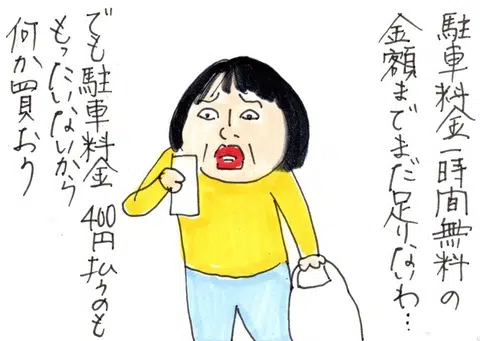 駐車料金一時間無料の
金額までまだ足りないわ…
でも駐車料金400円払うのも
もったいないから
何か買おう